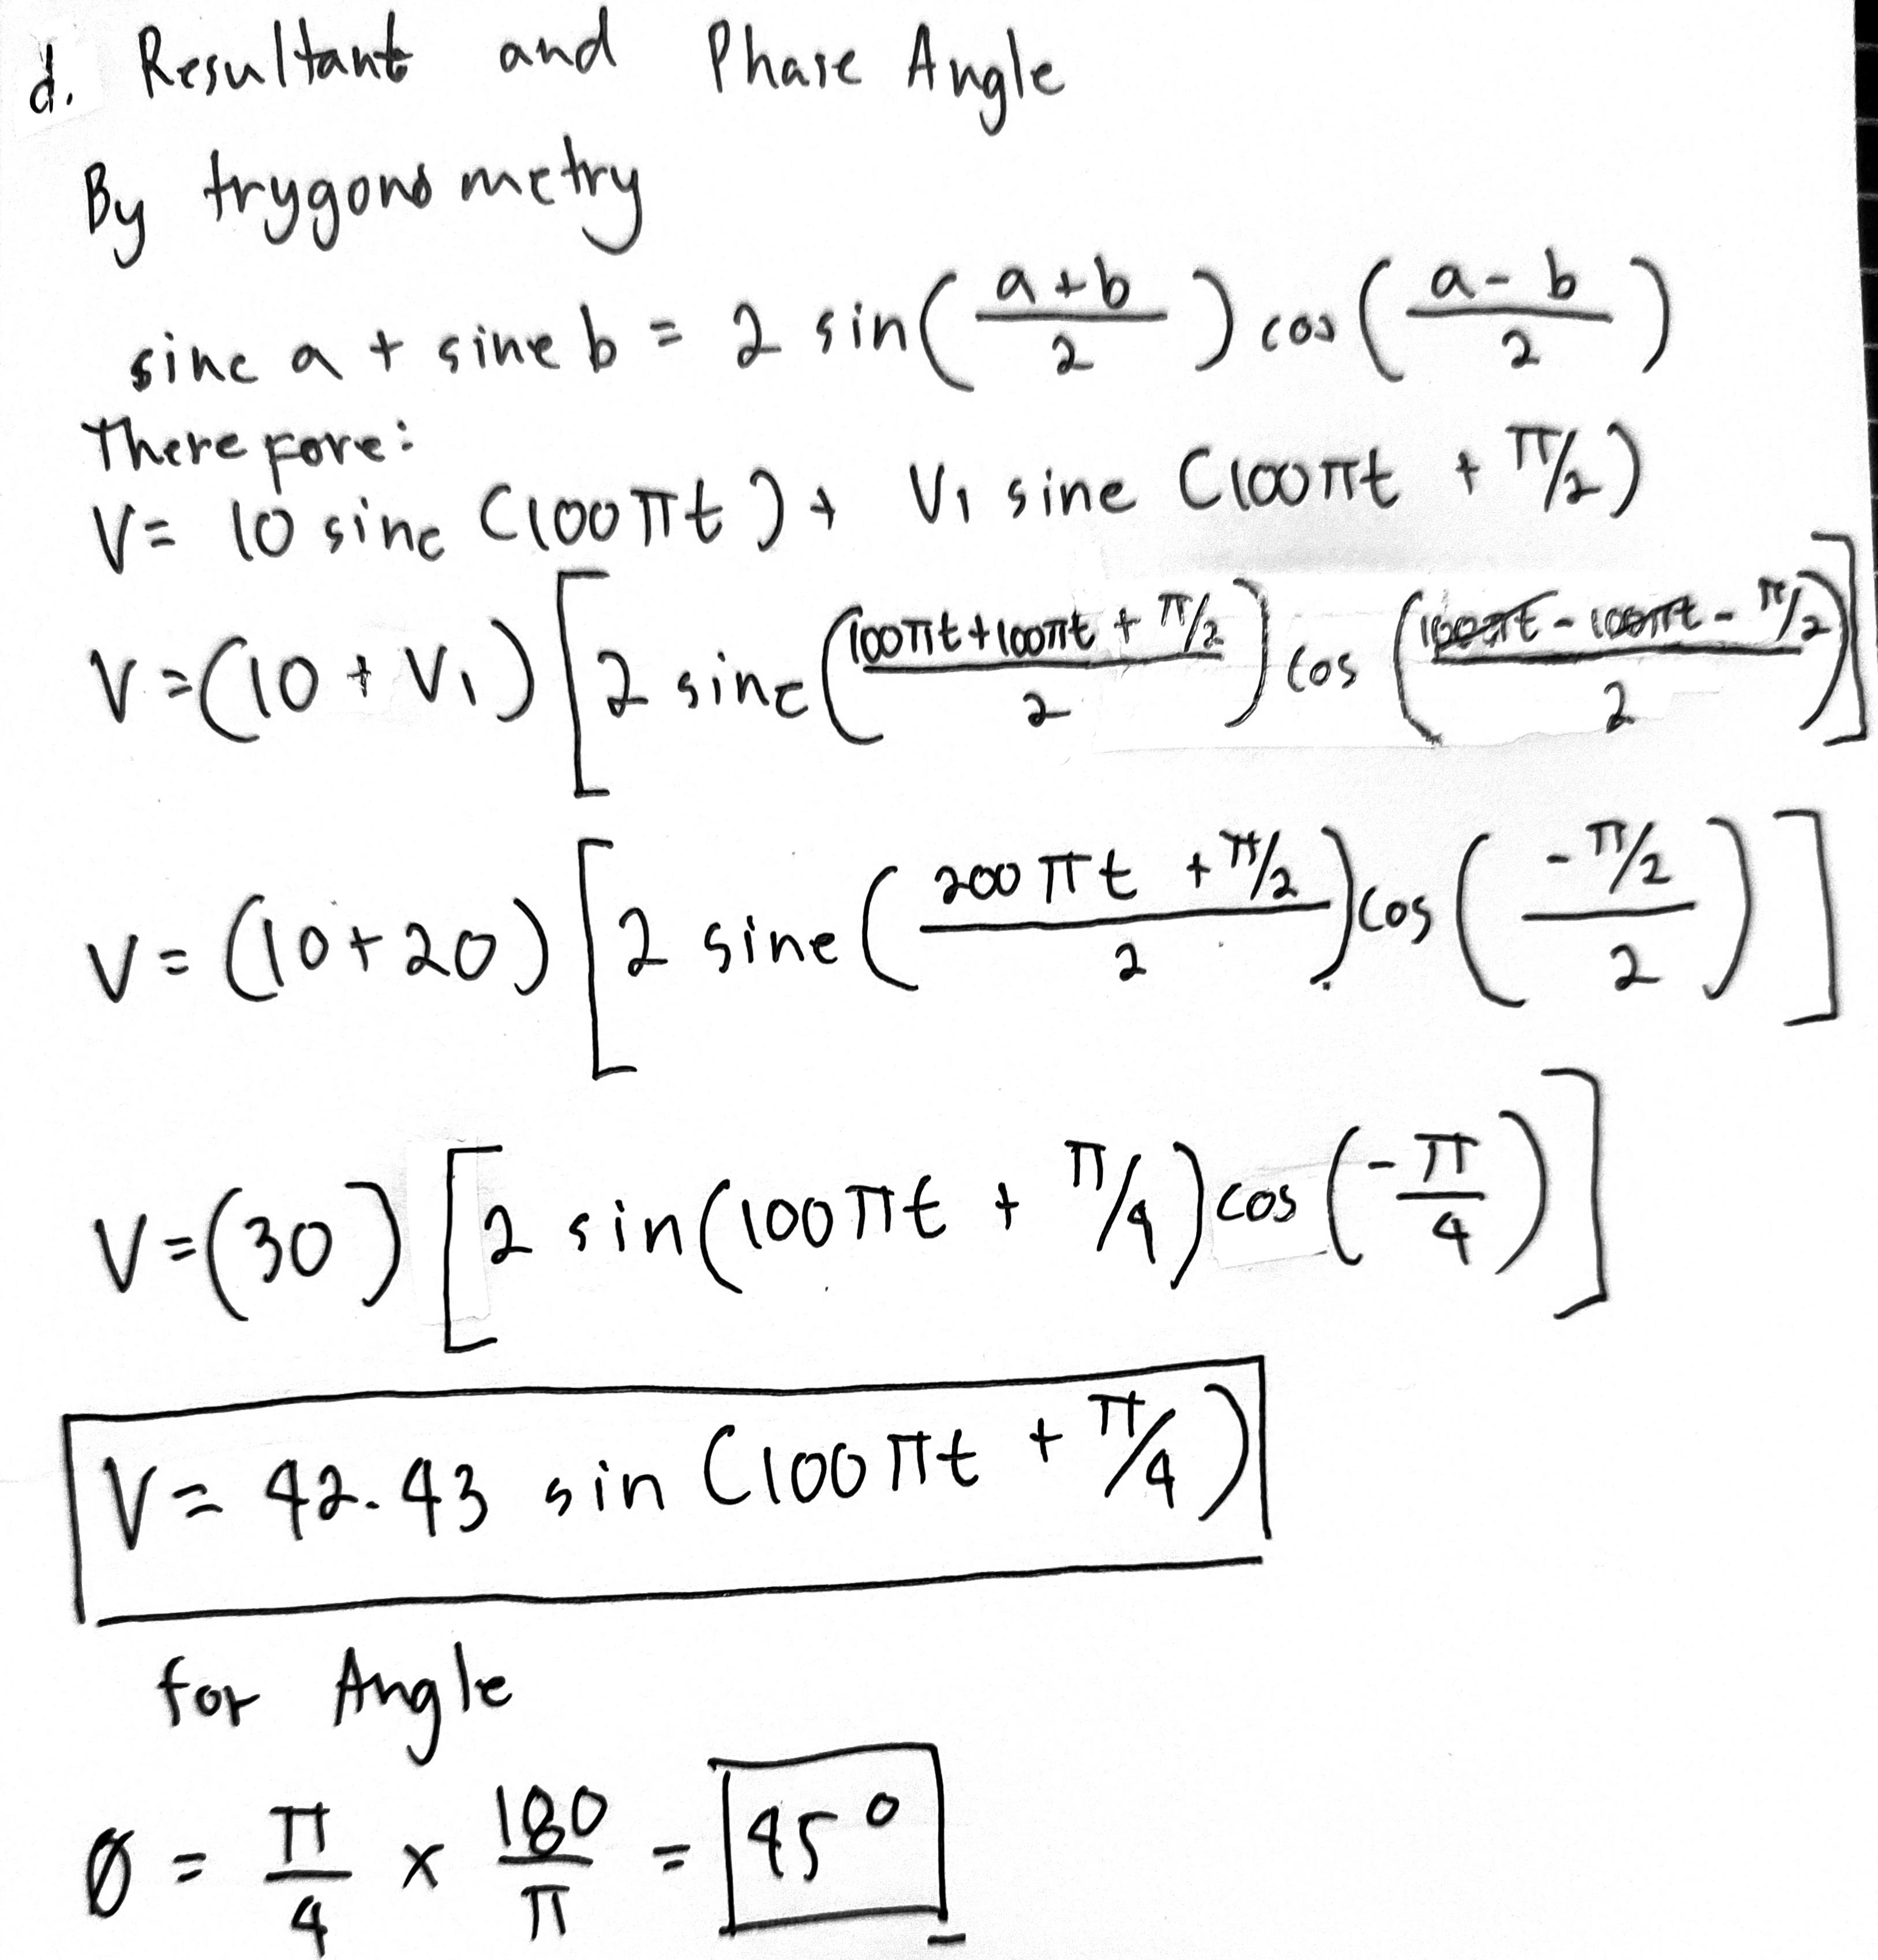 d. Resultant and Phase Angle
By trygonometry
sine a + sine b = 2 sin(a+b/2) cos(a-b/2)
Therefore:
V= 10 sine (100πt) + V1 sine (100πt + π/2)
V=(10 + V1)[2 sine(100πt+100πt + π/2/2) cos(100πt - 100πt - π/2/2)]
V= (10+20)[2 sine(200πt + π/2/2)cos(-π/2/2)]
V=(30)[2 sin(100πt + π/4)cos(-π/4)]
V= 42.43 sin (100πt + π/4)
for Angle
Ø = π/4 x 180/π = 45°